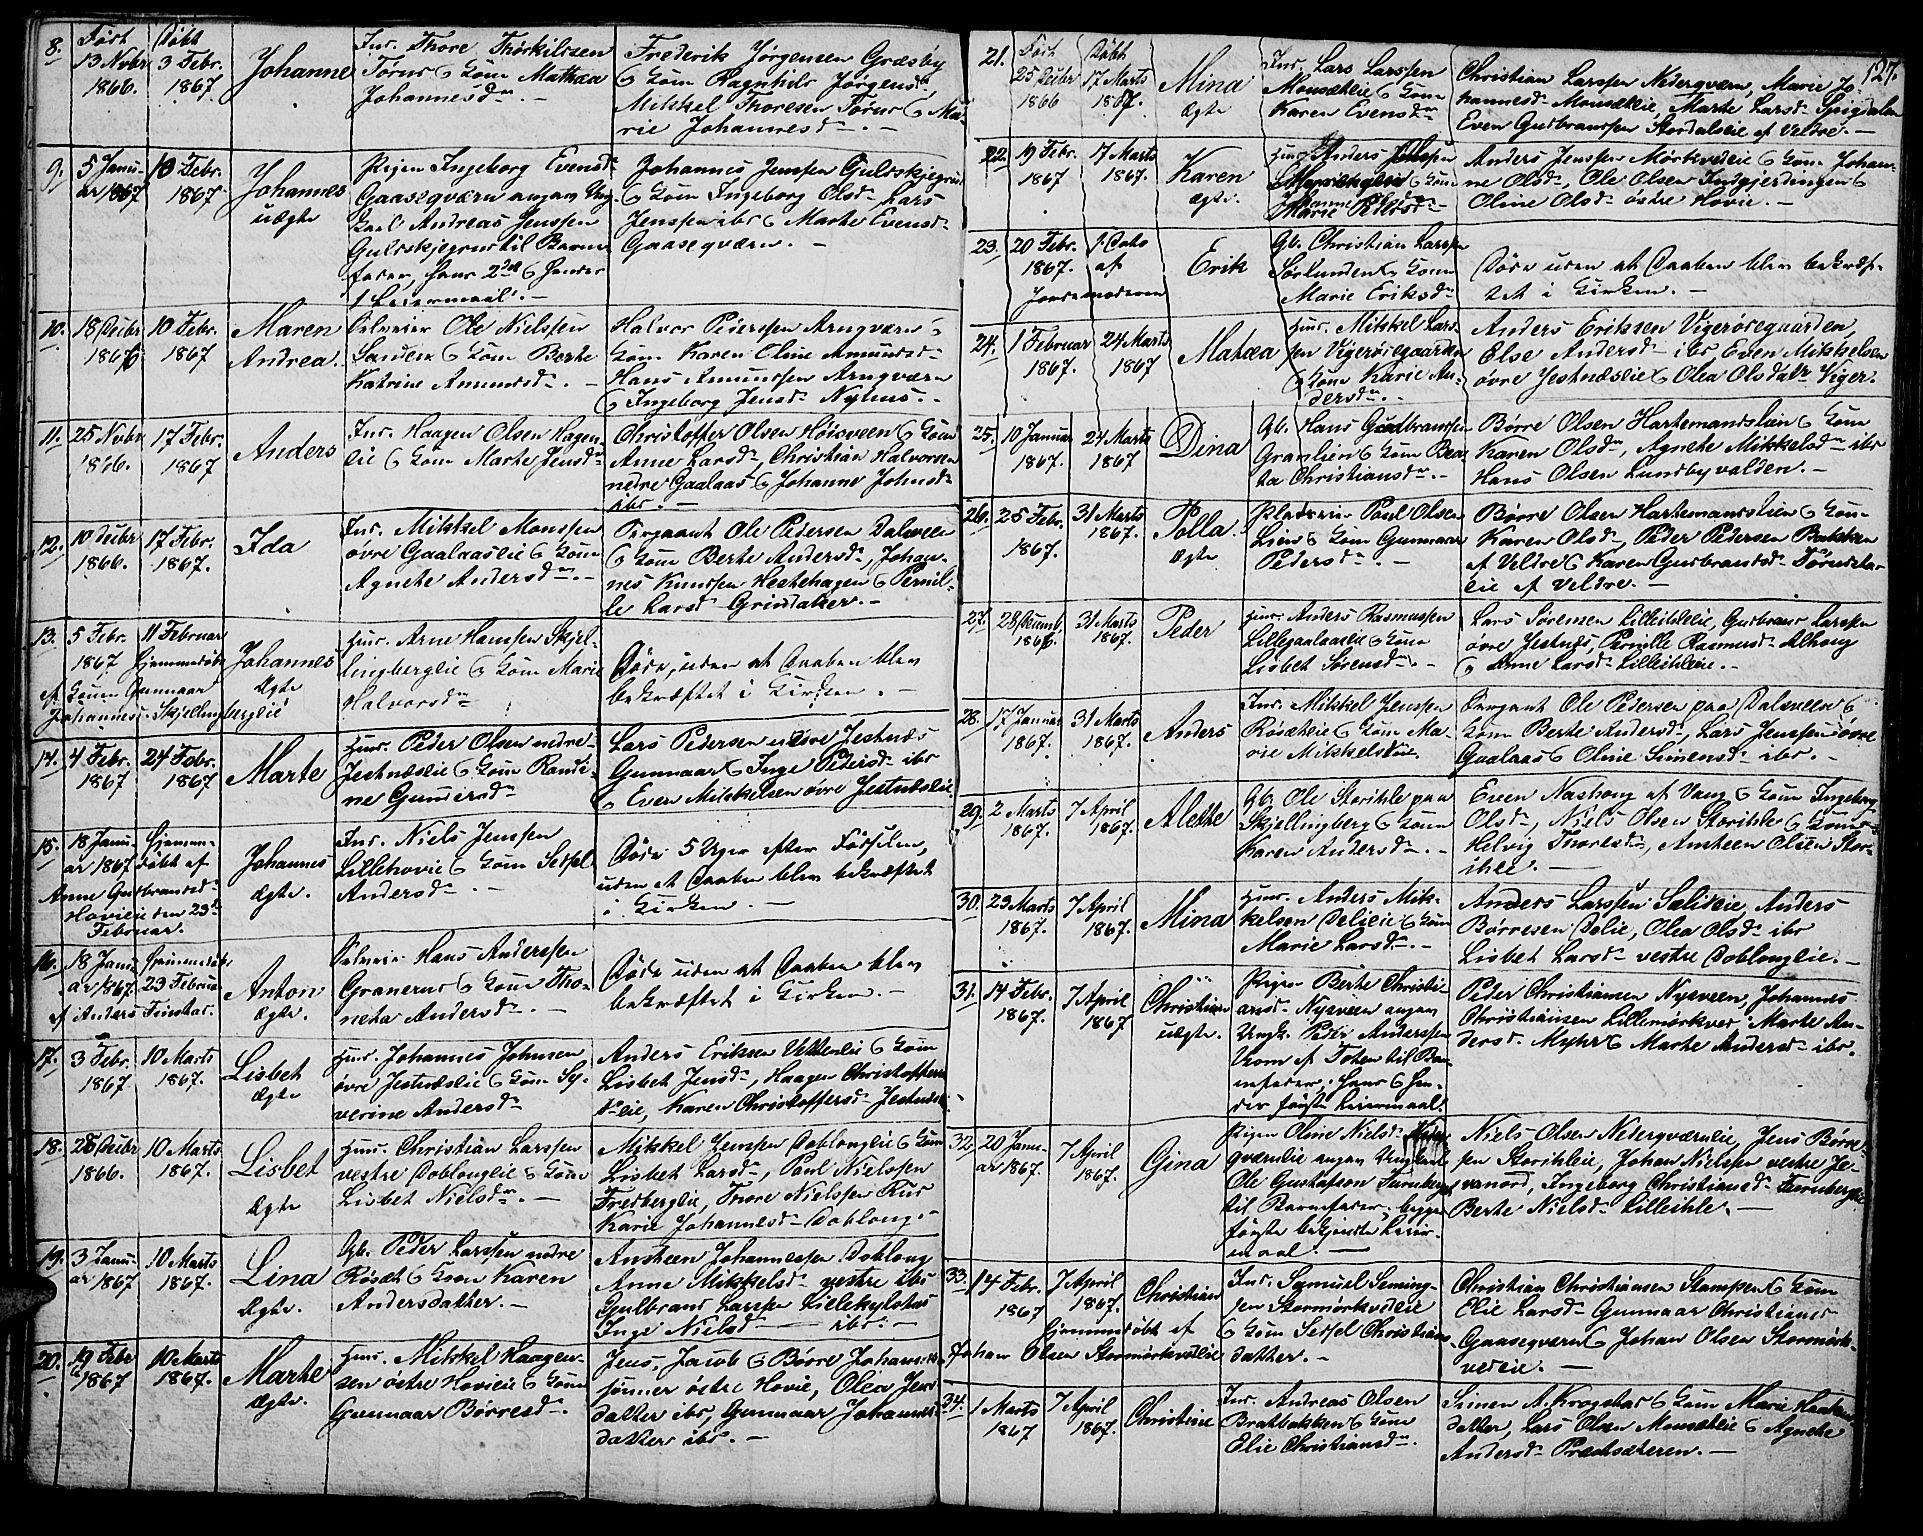 8.
Født
13 Novbr
1866.
Døbt
3 Febr.
1867.
Johanne
Ins. Thore Thorkilssen
Johannesd.
Frederik Jørgensen Græsby
& Kone Ragnhild Jørgensd.
Mikkel Thoresen
rie Johannesd. –
9.
5 Janu-
ar 1867
10 Febr.
1867.
Johannes
uægte
Pigen Ingeborg Evensd.
Gaaseqværn angav Ung
karl Andreas Jenssen
Guldskjegrud til Barne-
fader, hans 2det & hendes
1 Leiermaal. –
Johannes Jenssen Guldskjegrud
& Kone Ingeborg Olsd. Lars
Jenssen ibd & Marte Evensd.
Gaaseqværn. –
10.
18 Decbr
1866
10 Febr.
1867
Maren
Andrea.
Selveier Ole Nielssen
& Kone Berte
Katrine Amundsd. –
Halvor Pederssen Arnqværn &
Kone Karen Oline Amundsd.
Hans Amundssen Arnqværn
& Ingeborg Jensd. Nyhus. –
11.
25 Novbr
1866.
17 Febr.
1867
Anders
Ins. Haagen Olsen Hagen-
lie & Kone Marte Jensd.
Christoffer Olsen Høisveen & Kone
Anne Larsd., Christian Halvorsen
nedre Gaalaas & Johanne Johnsd.
ibd. –
12.
10 Decbr
1866.
17 Febr.
1867.
Ida
Ins. Mikkel Monssen
øvre Gaalaaslie & Kone
Agnete Andersd. –
Sergeant Ole Pedersen Dalsveen
& Kone Berte Andersd., Johan-
nes Knudssen Hestehagen & Pernil-
le Larsd. Grindaker. –
13.
5 Febr.
1867
11 Februar
Hjemmedøbt
af Konen Gunnaar
Johannesd. Skjellingberglie
Johannes
Ægte
Huus. Arne Hanssen Skjel-
lingberglie & Kone Marie
Halvorsd.
Døde, uden at Daaben blev
bekræftet i Kirken. –
14.
4 Febr.
1867
24 Febr.
1867
Marte
Huus. Peder Olsen nedre
Jestnæslie & Kone Randi-
ne Gundersd.
Lars Pedersen nedre Jestnæs
Gunnaar & Inge Pedersd. ibd
& Even Mikkelsen øvre Jestnæslie
15.
18 Janu-
ar 1867
Hjemme-
døbt af
Anne Gudbrandsd.
Hovieie den 23de
Februar.
Johannes
Ægte.
Ins. Niels Jenssen
Lillehovie & Kone Sessel
Andersd. –
Døde 5 Uger efter Fødselen,
uden at Daaben blev bekræftet
i Kirken. –
16.
18 Janu-
ar 1867.
Hjemmedøbt
23 Februar
af Anders Finstad.
Anton
Ægte.
Selveier Hans Anderssen
Granerud & Kone Tho-
neta Andersd. –
Døde uden at Daaben blev
bekræftet i Kirken. –
17.
3 Febr.
1867
10 Marts
1867.
Lisbet
Ægte
Huus. Johannes Johnsen
øvre Jestnæslie & Kone Sy-
verine Andersd.
Anders Erikssen & Kone
Lisbet Jensd., Haagen Christoffersen
Karen Christoffersd. Jestnæs
18.
28 Decbr
1866.
10 Marts
1867.
Lisbet
Ægte
Huus. Christian Larssen
vestre Doblouglie & Kone
Lisbet Nielsd. –
Mikkel Jenssen Doblouglie & Kone
Lisbet Larsd., Paul Nielssen
Fredberglie, Thore Nielssen Rud
Karie Johannesd. Doblong. –
19.
3 Janu-
ar 1867
10 Marts
1867.
Lina
Ægte.
Gb. Peder Larssen nedre
Røsæt & Kone Karen
Andersdatter. –
Amteen Johannessen Doblong
Anne Mikkelsd. vestre ibd
Gulbrand Larssen
Inge Nielsd. – ibd. –
20.
19 Febr
1867
10 Marts
1867.
Marte
Ægte.
Huus. Mikkel Haagen-
sen østre Hovieie & Kone
Gunnaar Børresd. –
Jens, Jacob & Børre Johannes-
sønner østre Hovie, Olea Jens
datter ibd, Gunnaar Johannes-
datter ibd. –
127.
21.
Født
25 Decbr
1866
Døbt
17 Marts
1867.
Mina
Ægte
Ins. Lars Larssen
Monsætlie & Kone
Karen Evensd.
Christian Larssen Nederqværn, Marie Jo-
hannesd. Monsætlie, Marte Larsd. Spigdalen
Even Gudbranssen Stordalseie af Veldre. –
22.
19 Febr.
1867
17 Marts
1867.
Karen
Ægte.
Huus. Anders Jenssen
Mørkvedlie & Kone
Anders Jenssen Mørkvedeie & Kone Johan-
ne Olsd., Ole Olsen Indgjerdingen &
Oline Olsd. østre Hovie. –
23.
20 Febr.
1867.
af
Jordemoderen
Erik
Gb. Christian Larssen
Sørlunden & Kone
Marie Eriksd.
Døde uden at Daaben blev bekræf-
tet i Kirken. –
24.
1 Februar
1867.
24 Marts
1867
Matea
Huus. Mikkel Lars-
sen Vigerøsegaarden
& Kone Karie An-
dersd. –
Anders Erikssen Vigerøsegaarden,
Olse Andersd. ibd, Even Mikkelsen
øvre Jestnæslie & Olea Olsdatr Viger.
25.
10 Januar
1867.
24 Marts
1867
Dina
Gb. Hans Gudbranssen
Granlien & Kone Bea-
ta Christiansd. –
Børre Olsen Hartemandslien & Kone
Karen Olsd., Agnete Mikkelsd. ibd
Hans Olsen Lundbyvalden. –
26.
25 Febr.
1867.
31 Marts
1867.
Polla
Ægte
Pladsm. Paul Olsen
Lien & Kone Gunnaar
Pedersd. –
Børre Olsen Hartemandslien & Kone
Karen Olsd., Peder Pedersen Bakken
af Veldre & Karen Gudbrandsd.
af Veldre. –
27.
28 Decemb
1866
31 Marts
1867.
Peder
Huus. Anders Rasmussen
Lillegaalaaslie & Kone
Lisbet Sørensd. –
Lars Sørensen Lilleihleie, Gudbrand Larssen
øvre Jestnæs, Pernille Rasmusd. Alhoug
& Anne Larsd. Lilleihleie. –
28.
17 Januar
1867.
31 Marts
1867.
Anders
Ins. Mikkel Jenssen
Røsætlie & Kone Ma-
rie Mikkelsdtr.
Sergeant Ole Pedersen paa Dalsveen &
Kone Berte Andersd., Lars Jenssen øvre
Gaalaas & Oline Simensd. ibd. –
29.
2 Marts
1867.
7 April
1867.
Alette
Gb. Ole Storihle paa
Skjellingberg & Kone
Karen Andersd. –
Even Nashoug af Vang & Kone Ingeborg
Olsd., Niels Olsen Storihle & Kone
Helvig Thoresd., Amteen Olsen Stor-
ihle. –
30.
23 Marts
1867.
7 April
1867.
Mina
Huus. Anders Mik-
kelsen Delieie & Kone
Marie Larsd. –
Anders Larssen Sælieie, Anders
Børresen Delie, Olea Olsd. ibd
Lisbet Larsd. vestre Doblouglie. –
31.
14 Febr.
1867.
7 April
1867
Christian
uægte.
Pigen Berte Christi-
ansd. Nysveen angav
Ungk. Peder Anderssen
Horn af Toten til Bar-
nefader, hans & hen-
des første Leiermaal.
Peder Christiansen Nysveen, Johannes
Christiansen Lillemørkved, Marte An-
dersd. Myhr & Marte Andersd. ibd.
32.
20 Janu-
ar 1867.
7 April
1867.
Gina
Pigen Oline Nielsd. Neder-
qværnlie angav Ungkarl
Ole Gustafson Furuberget
til Barnefader, begges
første bekjendte Leier-
maal. –
Niels Olsen Nederqværnlie, Jens Børre-
sen Storihleie, Johan Nielssen vestre Je-
vanord, Ingeborg Christiansd. Furuberglie
Berte Nielsd. Lilleihle. –
33.
14 Febr.
1867
7 April
1867.
Hjemmedøbt af
Johan Olsen Stormørkvedlie
Christian
Ins. Symuel Seming-
sen Stormørkvedlie
& Kone Sessel Christians
datter. –
Christian Christiansen Stampen & Kone
Elie Larsd. Gunnaar Christiansd.
Gaaseqværn & Johan Olsen Stormørk-
vedeie. –
34.
1 Marts
1867
7 April
1867.
Christine
Ins. Andreas Olsen
Bratbakken & Kone
Elie Christiansd.
Simen A. Krogstad & Kone Marie Haakens
datter, Lars Olsen Monsætlie & Agnete
Andersd. Præstsæteren. –